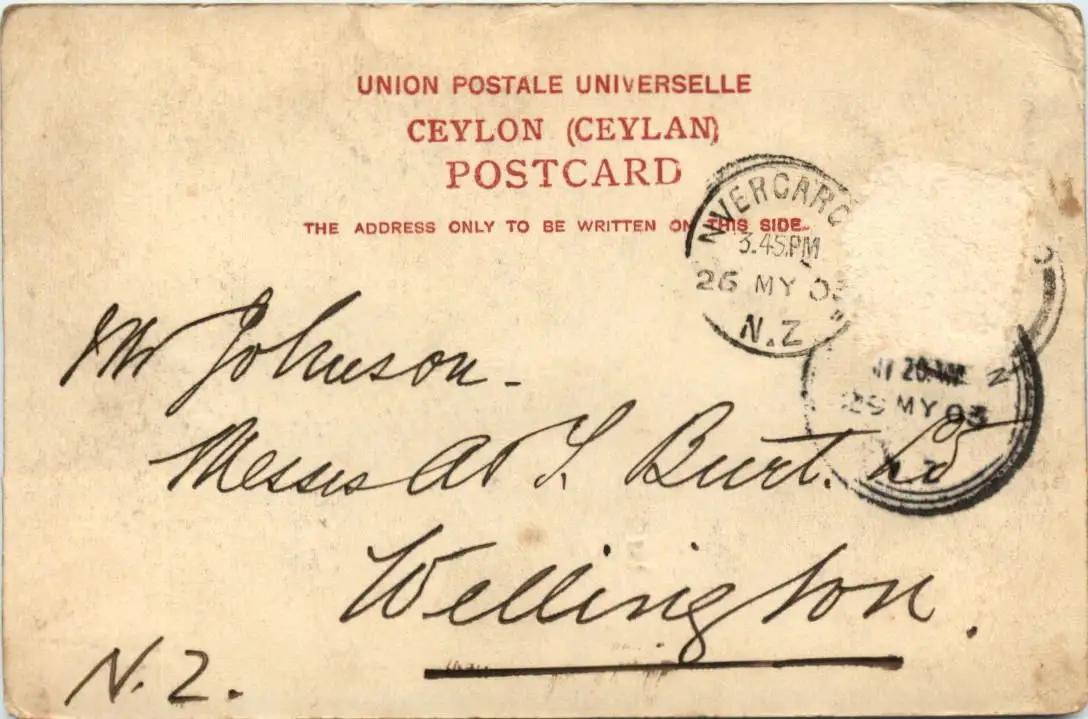 UNION POSTALE UNIVERSELLE
CEYLON (CEYLAN)
POSTCARD
THE ADDRESS ONLY TO BE WRITTEN ON THIS SIDE.
NVERCARG
3.45.PM
26 MY 03
N.Z
20.AM
29 MY 03
N.Z
Mr Johnson -
Messrs A & T Burt. Ld
Wellington.
N.Z.